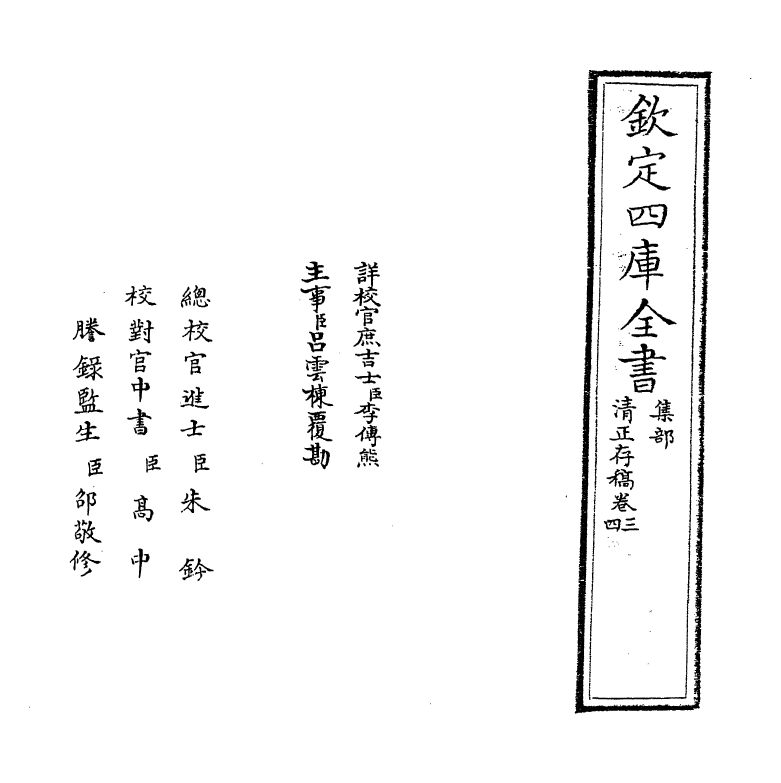 欽定四庫全書
集部
清正存稿卷三四
詳校官庶吉士臣李傳熊
主事臣呂雲棟覆勘
總校官進士臣朱鈐
校對官中書臣高中
謄錄監生臣邵敬修